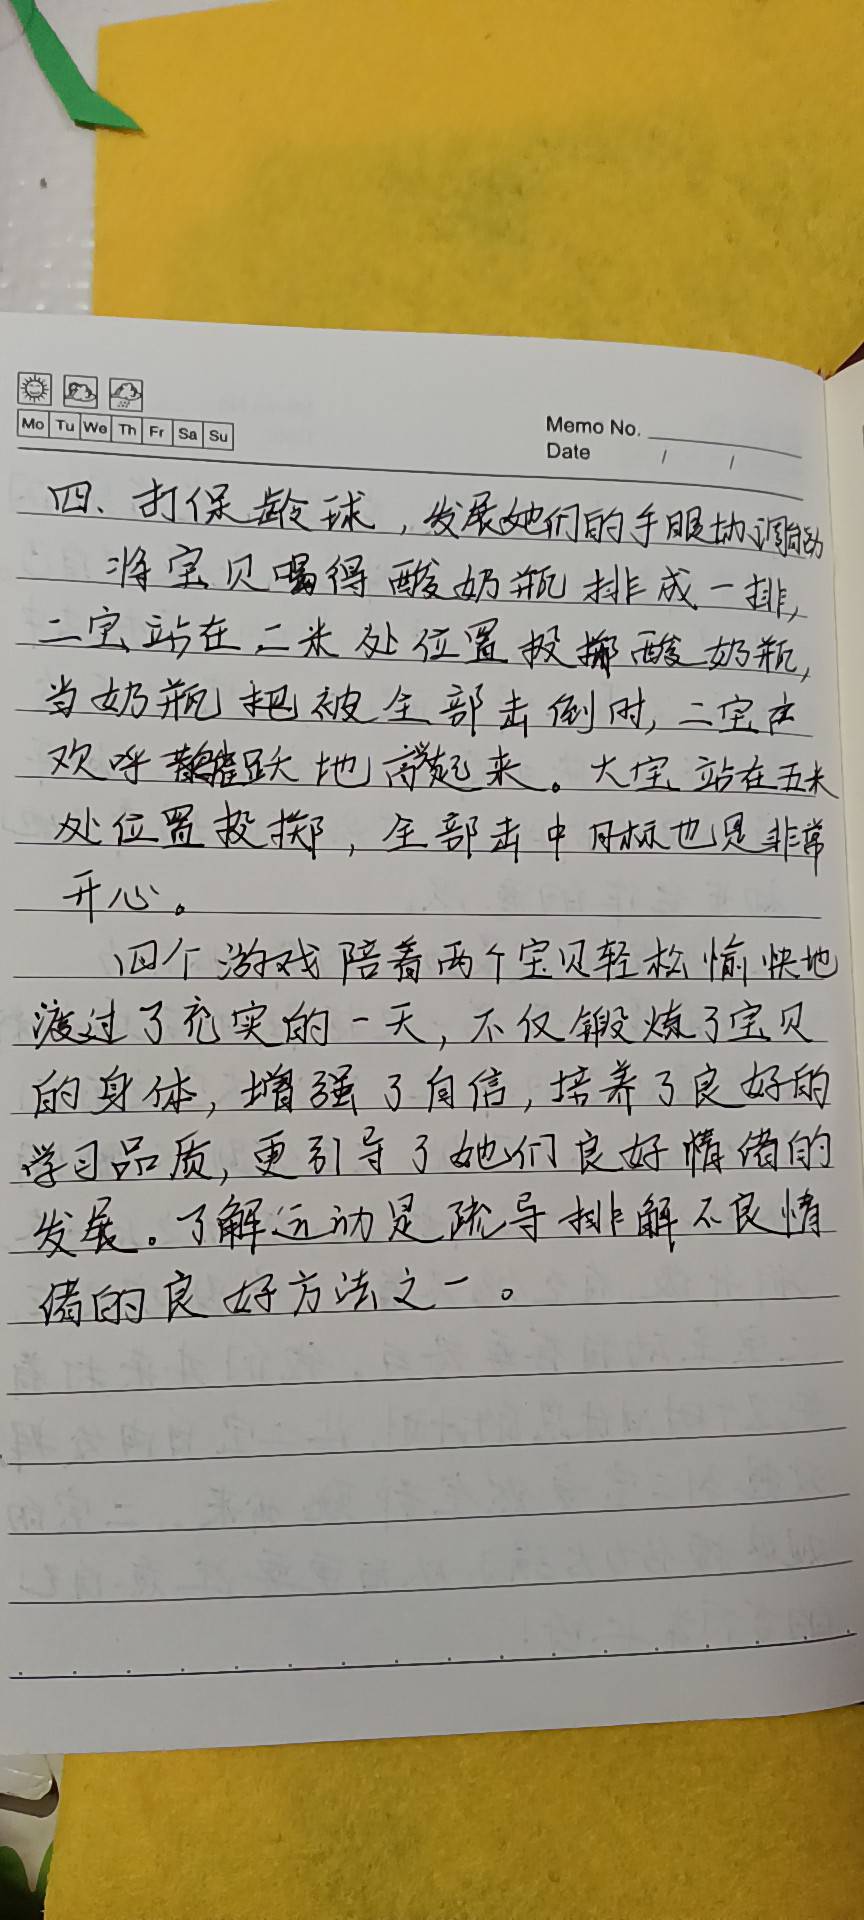 Mo Tu We Th Fr Sa Su
Memo No.
Date / /
四、打保龄球，发展她们的手眼协调能力
将宝贝喝得酸奶瓶排成一排，
二宝站在二米处位置投掷酸奶瓶，
当奶瓶把被全部击倒时，二宝在
欢呼跃地高起来。大宝站在五米
处位置投掷，全部击中目标也是非常
开心。
四个游戏陪着两个宝贝轻松愉快地
渡过了充实的一天，不仅锻炼了宝贝
的身体，增强了自信，培养了良好的
学习品质，更引导了她们良好情绪的
发展。了解运动是疏导排解不良情
绪的良好方法之一。